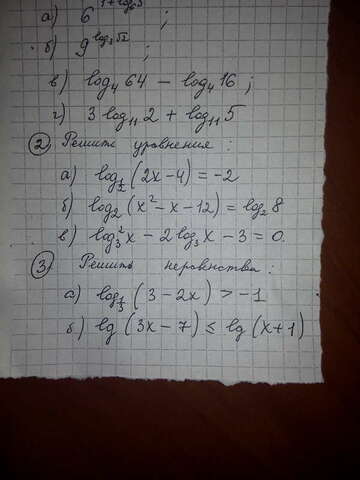 а) 6^{1+log₆5} ;
б) 9^{log₃√2} ;
в) log₄ 64 − log₄ 16 ;
г) 3 log₁₁ 2 + log₁₁ 5
② Решить уравнения :
а) log_{1/2} (2x−4) = −2
б) log₂ (x² − x − 12) = log₂ 8
в) log₃² x − 2 log₃ x − 3 = 0.
③ Решить неравенства :
а) log_{1/3} (3 − 2x) > −1
б) lg (3x − 7) ≤ lg (x+1)